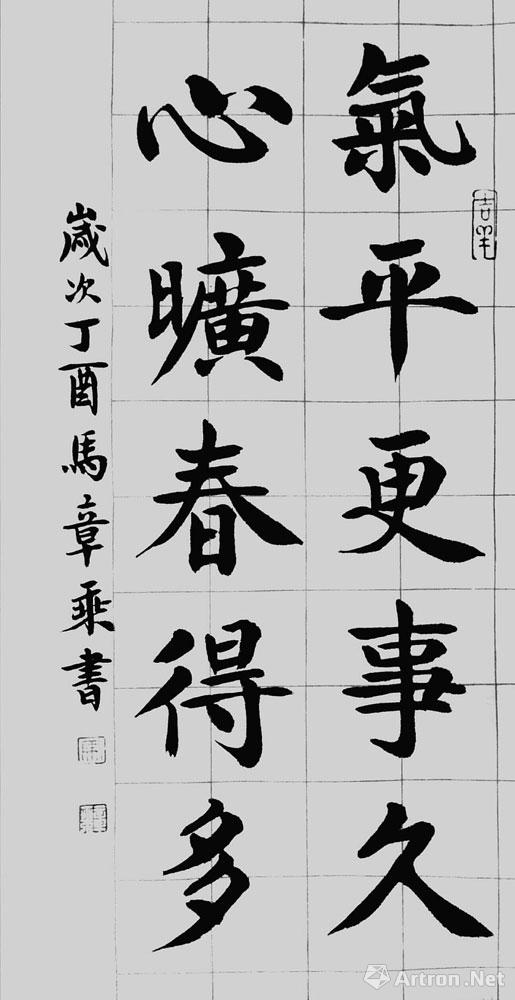 氣平更事久
心曠春得多
歲次丁酉馬章乘書
吉羊
Artron.Net